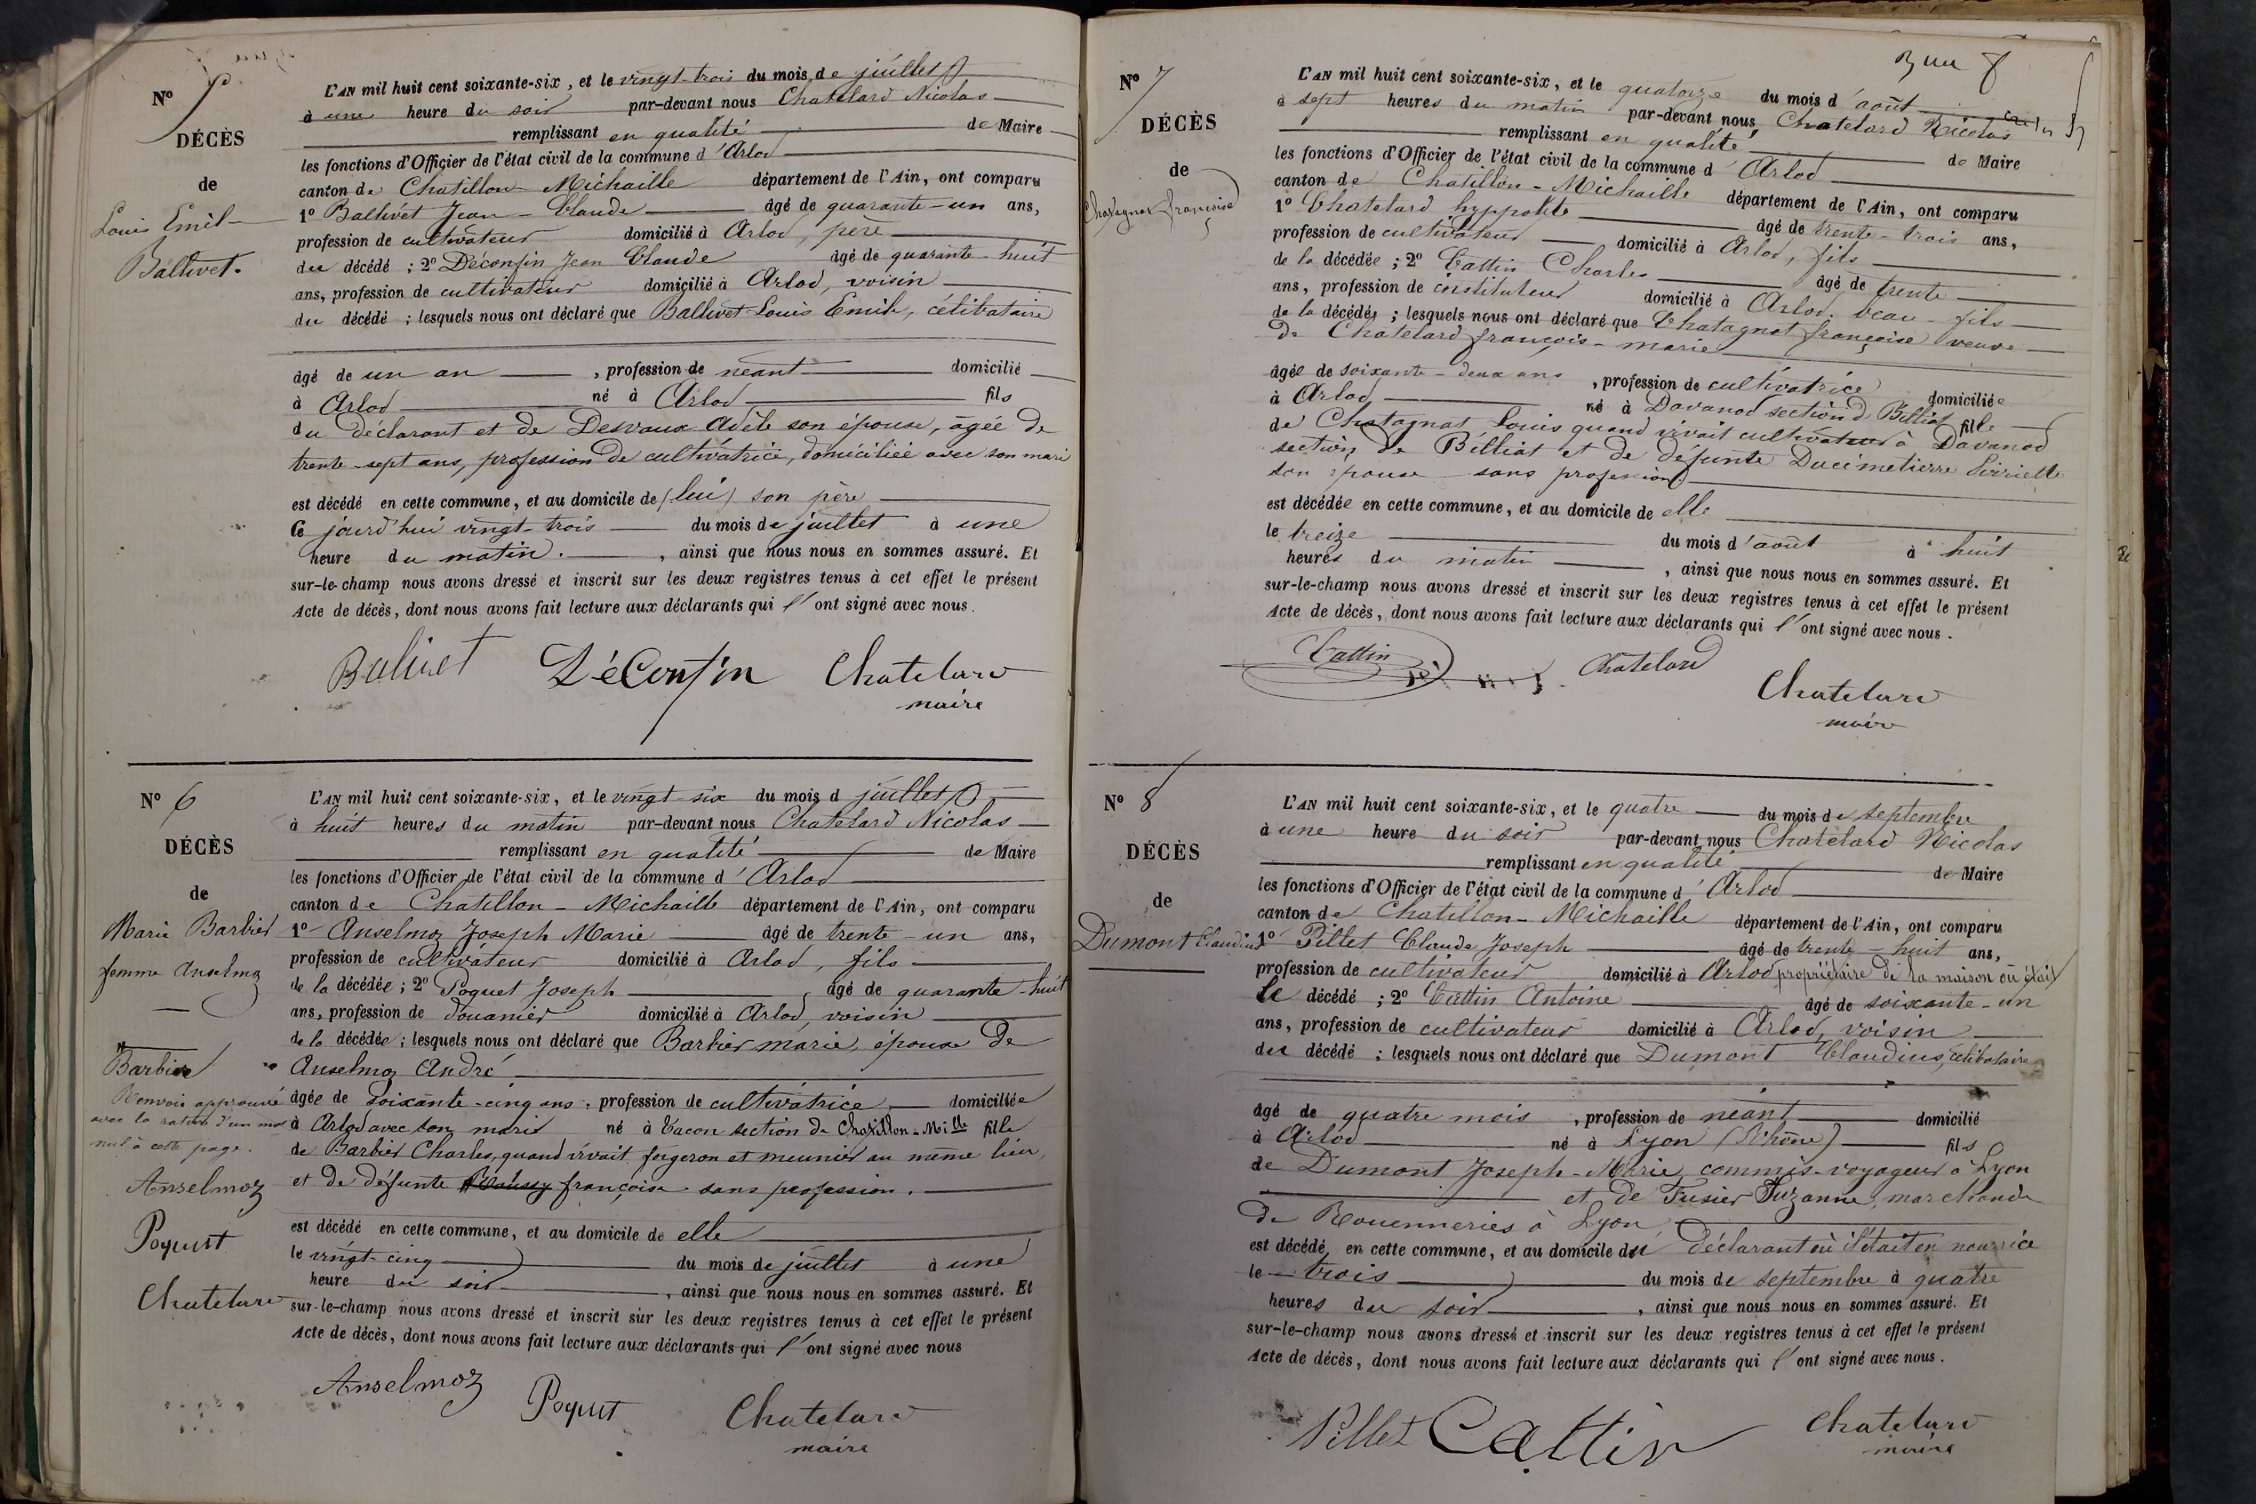 N° 5
DÉCÈS
de
Louis Emil
Ballivet.
L'AN mil huit cent soixante-six, et le vingt-trois du mois de juillet
à une heure du soir par-devant nous Chatelard Nicolas
remplissant en qualité de Maire
les fonctions d'Officier de l'état civil de la commune d'Arlod
canton de Chatillon-Michaille département de l'Ain, ont comparu
1° Ballivet Jean-Claude âgé de quarante-un ans,
profession de cultivateur domicilié à Arlod, père
du décédé ; 2° Déconfin Jean Claude âgé de quarante-huit
ans, profession de cultivateur domicilié à Arlod, voisin
du décédé ; lesquels nous ont déclaré que Ballivet Louis Emile, célibataire
âgé de un an , profession de néant domicilié
à Arlod né à Arlod fils
du déclarant et de Desvaux Adèle son épouse, âgée de
trente-sept ans, profession de cultivatrice, domiciliée avec son mari
est décédé en cette commune, et au domicile de (lui) son père
Ce jourd'hui vingt-trois du mois de juillet à une
heure du matin. , ainsi que nous nous en sommes assuré. Et
sur-le-champ nous avons dressé et inscrit sur les deux registres tenus à cet effet le présent
Acte de décès, dont nous avons fait lecture aux déclarants qui l'ont signé avec nous.
Balivet DéConfin Chatelard
maire
N° 6
DÉCÈS
de
Marie Barbier
femme Anselmoz
Barbier
Renvois approuvé
avec la rature d'un mot
nul à cette page.
Anselmoz
Poquet
Chatelard
L'AN mil huit cent soixante-six, et le vingt-six du mois d juillet
à huit heures du matin par-devant nous Chatelard Nicolas
remplissant en qualité de Maire
les fonctions d'Officier de l'état civil de la commune d'Arlod
canton de Chatillon-Michaille département de l'Ain, ont comparu
1° Anselmoz Joseph Marie âgé de trente-un ans,
profession de cultivateur domicilié à Arlod, fils
de la décédée ; 2° Poquet Joseph âgé de quarante-huit
ans, profession de douanier domicilié à Arlod, voisin
de la décédée ; lesquels nous ont déclaré que Barbier marie, épouse de
Anselmoz André
âgée de soixante-cinq ans, profession de cultivatrice domiciliée
à Arlod avec son mari né à Tacon section de Chatillon-Mille fille
de Barbier Charles, quand vivait forgeron et meunier au même lieu,
et de défunte françoise sans profession.
est décédé en cette commune, et au domicile de elle
le vingt-cinq du mois de juillet à une
heure du soir , ainsi que nous nous en sommes assuré. Et
sur-le-champ nous avons dressé et inscrit sur les deux registres tenus à cet effet le présent
Acte de décès, dont nous avons fait lecture aux déclarants qui l'ont signé avec nous
Anselmoz Poquet Chatelard
maire
N° 7
DÉCÈS
de
Chatagnat françoise
L'AN mil huit cent soixante-six, et le quatorze du mois d'août
à sept heures du matin par-devant nous Chatelard Nicolas
remplissant en qualité de Maire
les fonctions d'Officier de l'état civil de la commune d'Arlod
canton de Châtillon-Michaille département de l'Ain, ont comparu
1° Chatelard hyppolite âgé de trente-trois ans,
profession de cultivateur domicilié à Arlod, fils
de la décédée ; 2° Cattin Charles âgé de trente
ans, profession de instituteur domicilié à Arlod, beau-fils
de la décédée ; lesquels nous ont déclaré que Chatagnat françoise veuve
de Chatelard françois-marie
âgée de soixante-deux ans , profession de cultivatrice domiciliée
à Arlod né à Davanod section d Billiat fille
de Chatagnat Louis quand vivait cultivateur à Davanod
section de Billiat et de défunte Ducimetierre Pierrette
son épouse sans profession
est décédée en cette commune, et au domicile de elle
le treize du mois d'août à huit
heures du matin , ainsi que nous nous en sommes assuré. Et
sur-le-champ nous avons dressé et inscrit sur les deux registres tenus à cet effet le présent
Acte de décès, dont nous avons fait lecture aux déclarants qui l'ont signé avec nous.
Cattin Chatelard
Chatelard
maire
N° 8
DÉCÈS
de
Dumont Claudius
L'AN mil huit cent soixante-six, et le quatre du mois de septembre
à une heure du soir par-devant nous Chatelard Nicolas
remplissant en qualité de Maire
les fonctions d'Officier de l'état civil de la commune d'Arlod
canton de Chatillon-Michaille département de l'Ain, ont comparu
1° Pillet Claude Joseph âgé de trente-huit ans,
profession de cultivateur domicilié à Arlod propriétaire de la maison où était
le décédé ; 2° Cattin Antoine âgé de soixante-un
ans, profession de cultivateur domicilié à Arlod, voisin
du décédé ; lesquels nous ont déclaré que Dumont Claudius, célibataire
âgé de quatre mois , profession de néant domicilié
à Arlod né à Lyon (Rhône) fils
de Dumont Joseph-Marie commis-voyageur à Lyon
et de Fusier Suzanne, marchande
de Rouenneries à Lyon
est décédé, en cette commune, et au domicile du déclarant où il était en nourrice
le trois du mois de septembre à quatre
heures du soir , ainsi que nous nous en sommes assuré. Et
sur-le-champ nous avons dressé et inscrit sur les deux registres tenus à cet effet le présent
Acte de décès, dont nous avons fait lecture aux déclarants qui l'ont signé avec nous.
Pillet Cattin Chatelard
maire